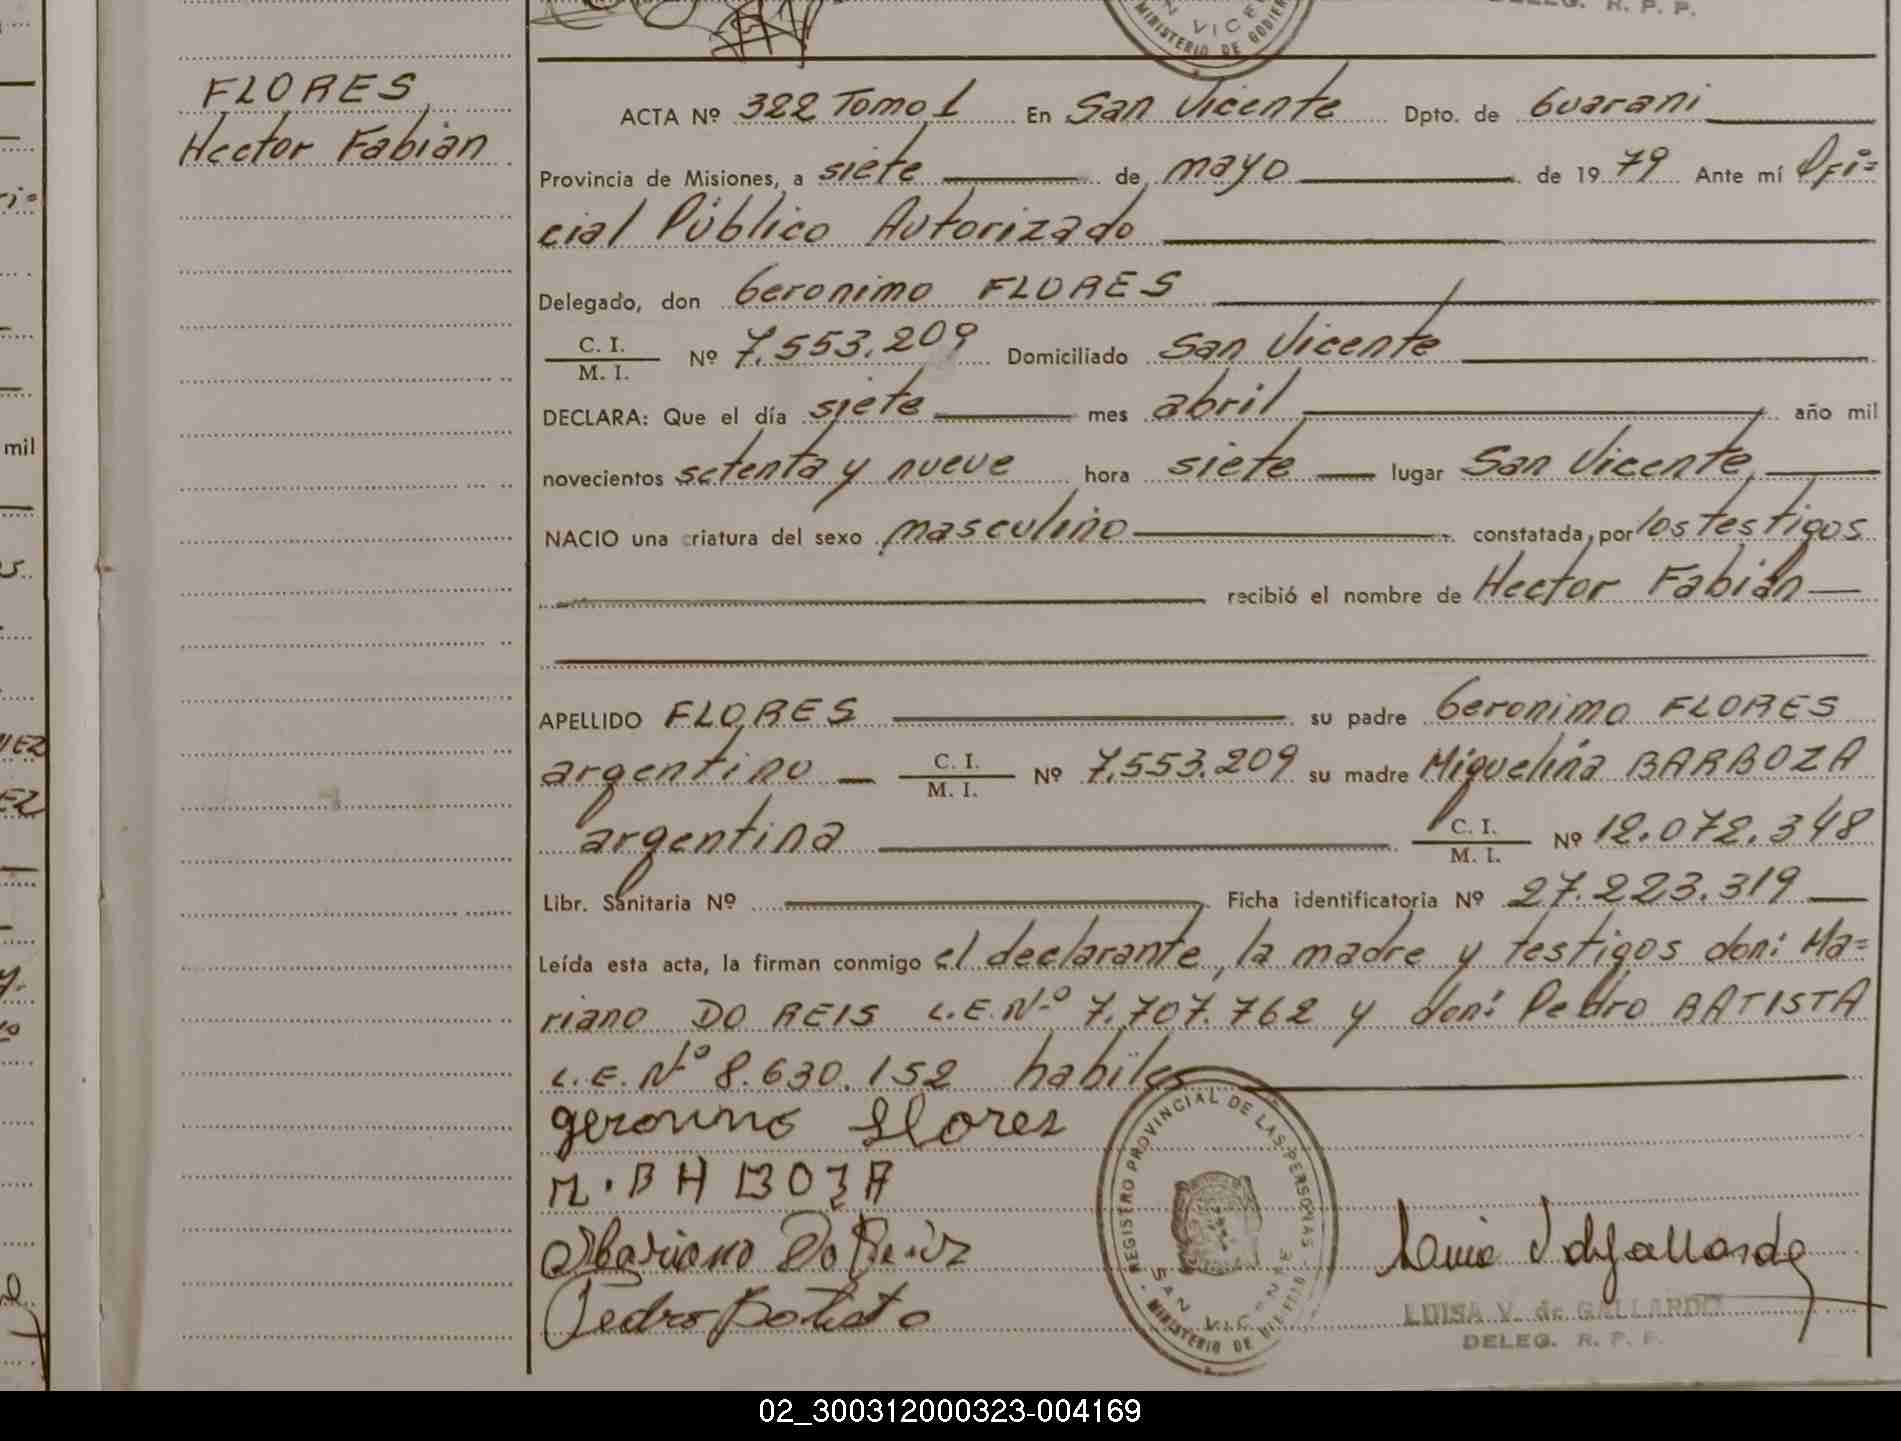 DELEG. R. P. P.
SAN VICENTE
MINISTERIO DE GOBIERNO
FLORES
Hector Fabián
ACTA Nº 322 Tomo 1 En San Vicente Dpto. de Guarani
Provincia de Misiones, a siete de mayo de 1979 Ante mí Ofi=
cial Público Autorizado
Delegado, don Geronimo FLORES
C. I.
M. I. Nº 7.553.209 Domiciliado San Vicente
DECLARA: Que el día siete mes abril año mil
novecientos setenta y nueve hora siete lugar San Vicente
NACIO una criatura del sexo masculino constatada por los testigos
recibió el nombre de Hector Fabián
APELLIDO FLORES su padre Geronimo FLORES
argentino C. I.
M. I. Nº 7.553.209 su madre Miguelina BARBOZA
argentina C. I.
M. I. Nº 12.072.348
Libr. Sanitaria Nº Ficha identificatoria Nº 27.223.319
Leída esta acta, la firman conmigo el declarante, la madre y testigos don: Ma=
riano DO REIS L.E.Nº 7.707.762 y don: Pedro BATISTA
L.E.Nº 8.630.152 habiles
geronimo flores
M. BARBOZA
Mariano Do Reis
Pedro Batista
REGISTRO PROVINCIAL DE LAS PERSONAS
SAN VICENTE
MINISTERIO DE GOBIERNO
LUISA V. de GALLARDO
DELEG. R. P. P.
mil
02_300312000323-004169